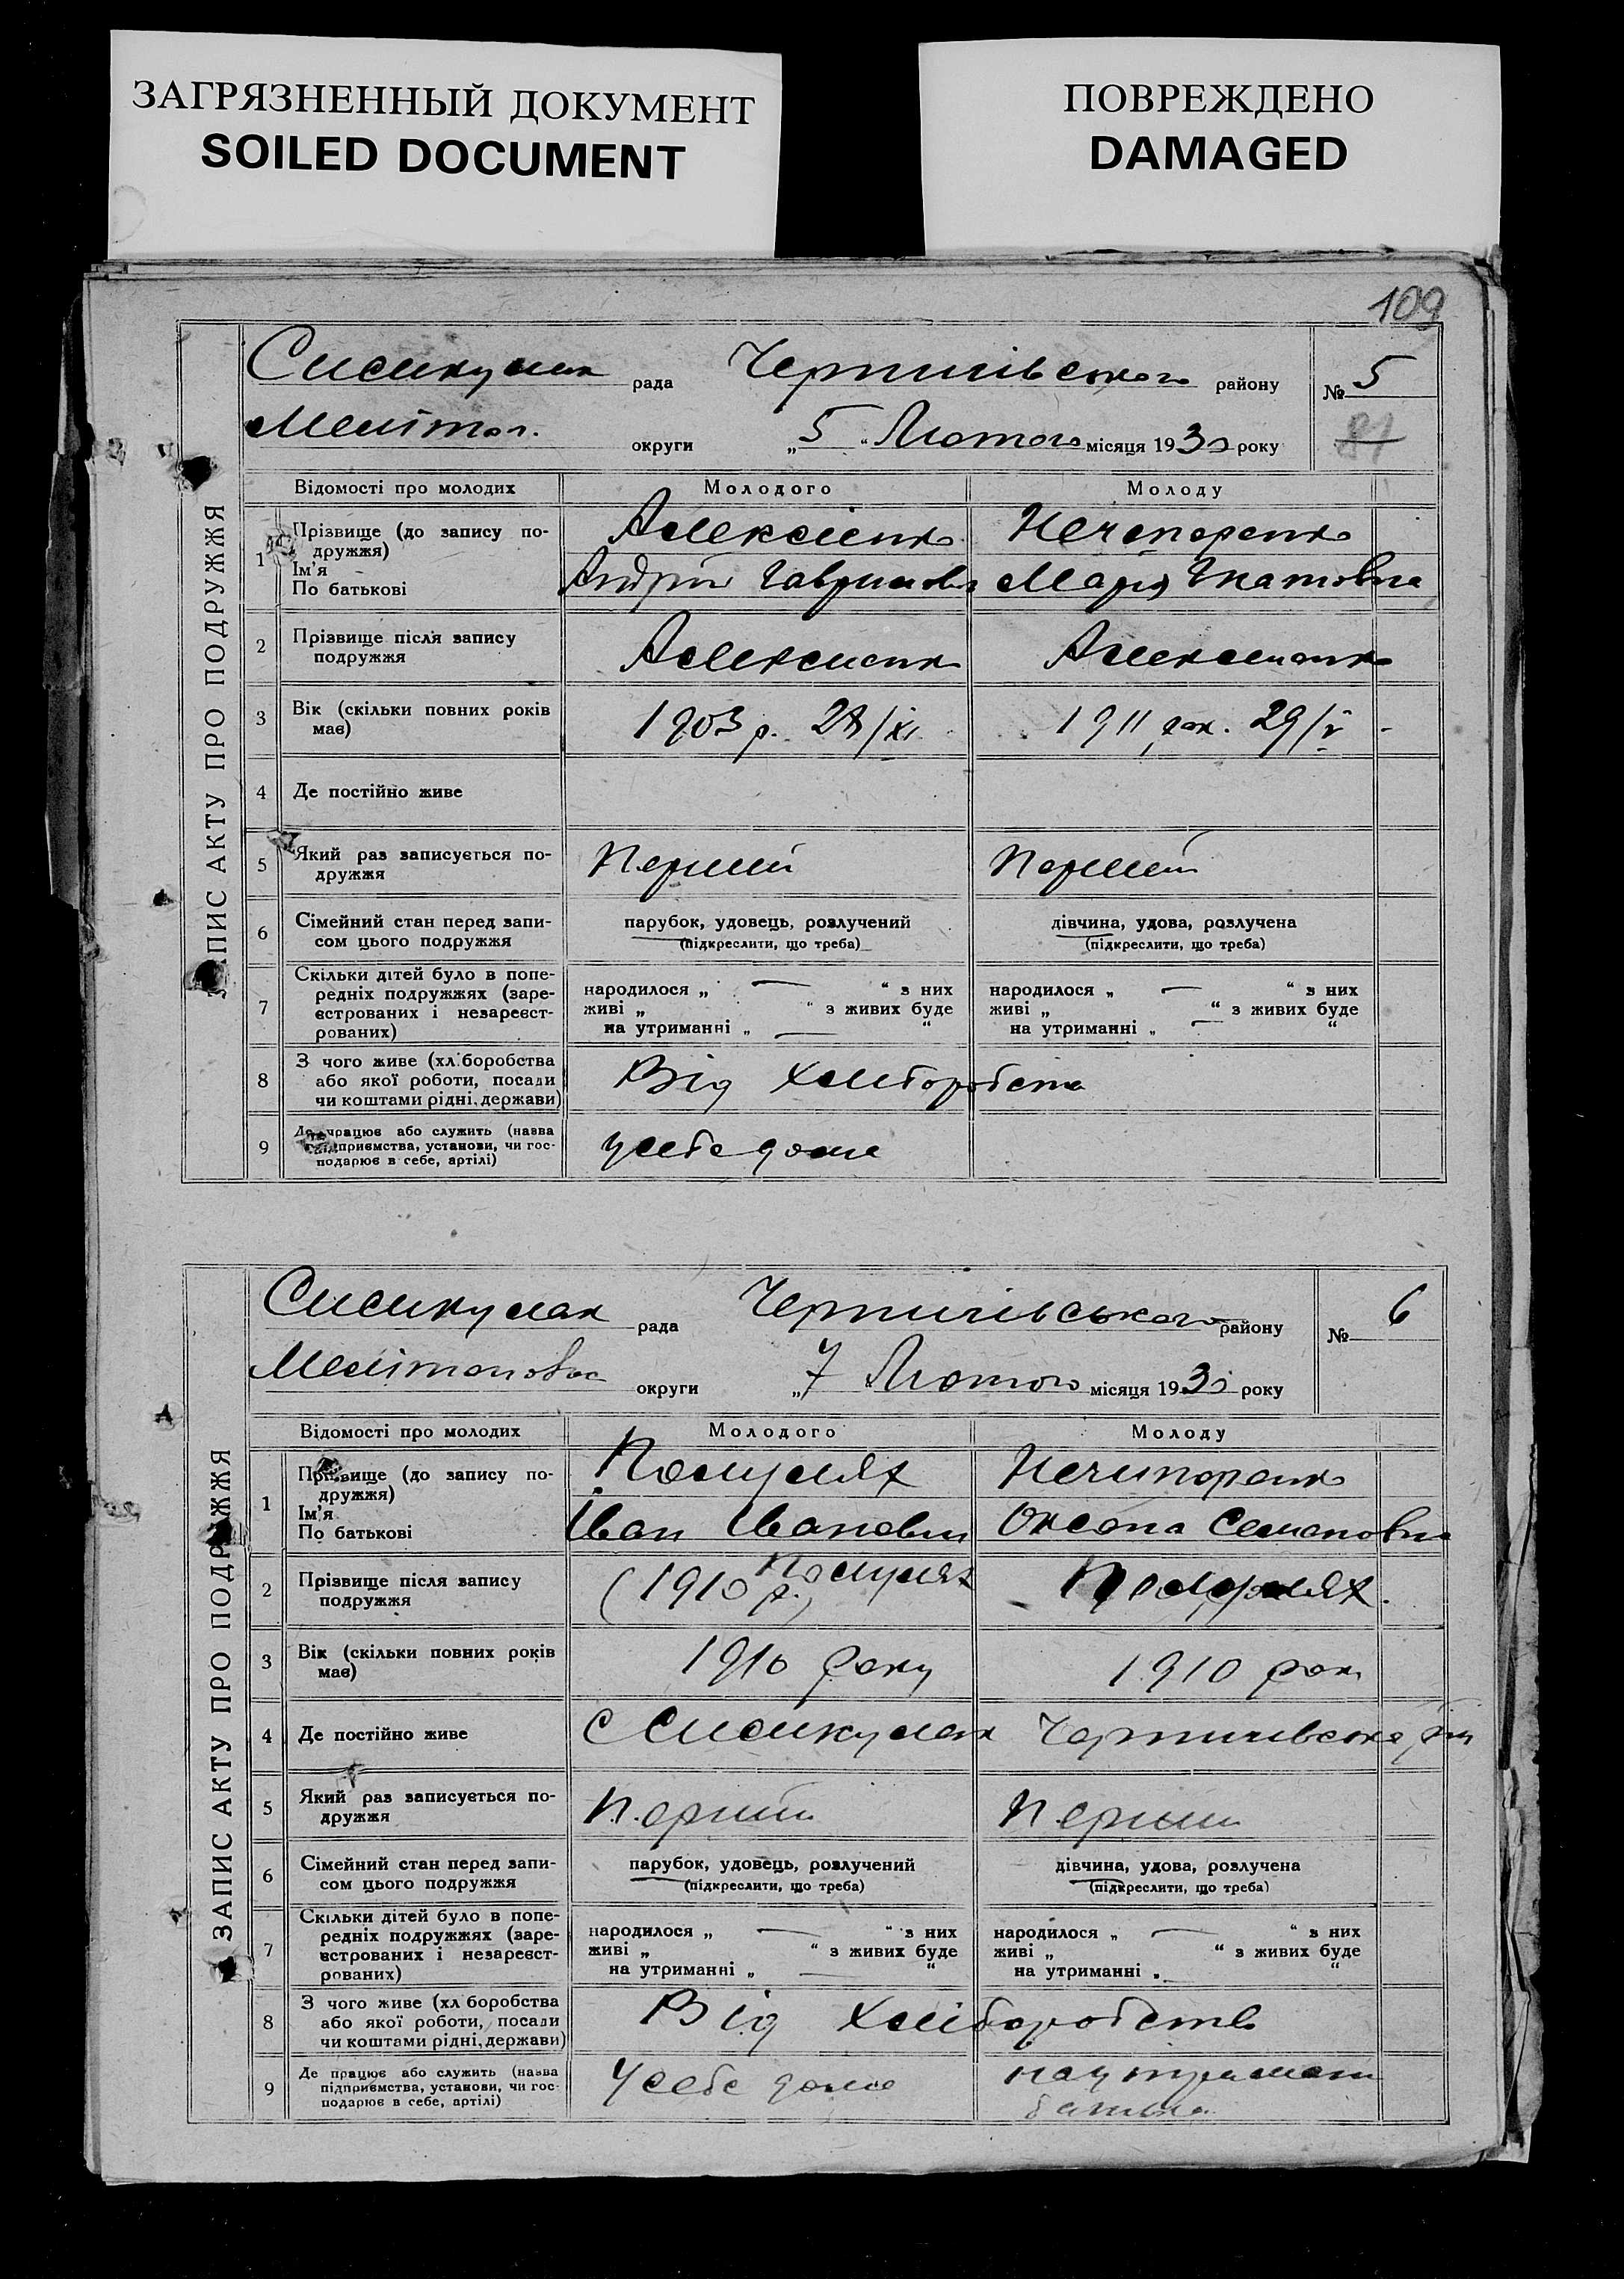 ЗАГРЯЗНЕННЫЙ ДОКУМЕНТ
SOILED DOCUMENT
ПОВРЕЖДЕНО
DAMAGED
109
ЗАПИС АКТУ ПРО ПОДРУЖЖЯ
рада Чернигівського району № 5
Мелітоп. округи „5“ Лютого місяця 1930 року 81
Відомості про молодих Молодого Молоду
1 Прізвище (до запису по-
дружжя)
Ім'я
По батькові
Алексієнко Нечепоренко
Андрій Гаврилови Марія Гнатовна
2 Прізвище після запису
подружжя
Алексиенк Алексиенко
3 Вік (скільки повних років
має)
1903 р. 28/XI. 1911 рок. 29/V -
4 Де постійно живе
5 Який раз записується по-
дружжя
Перший Перший
6 Сімейний стан перед запи-
сом цього подружжя
парубок, удовець, розлучений дівчина, удова, розлучена
(підкреслити, що треба) (підкреслити, що треба)
7 Скільки дітей було в попе-
редніх подружжях (заре-
єстрованих і незареєст-
рованих)
народилося „ — “ з них народилося „ — “ з них
живі „ “ з живих буде живі „ “ з живих буде
на утриманні „ — “ на утриманні „ — “
8 З чого живе (хліборобства
або якої роботи, посади
чи коштами рідні, держави)
Від Хлиборобства
9 Де працює або служить (назва
підприємства, установи, чи гос-
подарює в себе, артілі)
усебе дома
ЗАПИС АКТУ ПРО ПОДРУЖЖЯ
рада Чернигівського району № 6
Мелітоповськ округи „7 Лютого місяця 1930 року
Відомості про молодих Молодого Молоду
1 Прізвище (до запису по-
дружжя)
Ім'я
По батькові
Нечипоренко
Іван Іванович Оксана Семеновна
2 Прізвище після запису
подружжя
(1910 р.)
3 Вік (скільки повних років
має)
1910 року 1910 рок
4 Де постійно живе
С Чернигівська р-ну
5 Який раз записується по-
дружжя
Перший Перший
6 Сімейний стан перед запи-
сом цього подружжя
парубок, удовець, розлучений дівчина, удова, розлучена
(підкреслити, що треба) (підкреслити, що треба)
7 Скільки дітей було в попе-
редніх подружжях (заре-
єстрованих і незареєст-
рованих)
народилося „ — “ з них народилося „ — “ з них
живі „ “ з живих буде живі „ “ з живих буде
на утриманні „ — “ на утриманні „ “
8 З чого живе (хл боробства
або якої роботи, посади
чи коштами рідні, держави)
Від Хліборобства
9 Де працює або служить (назва
підприємства, установи, чи гос-
подарює в себе, артілі)
Усебе дома на утримани
батька